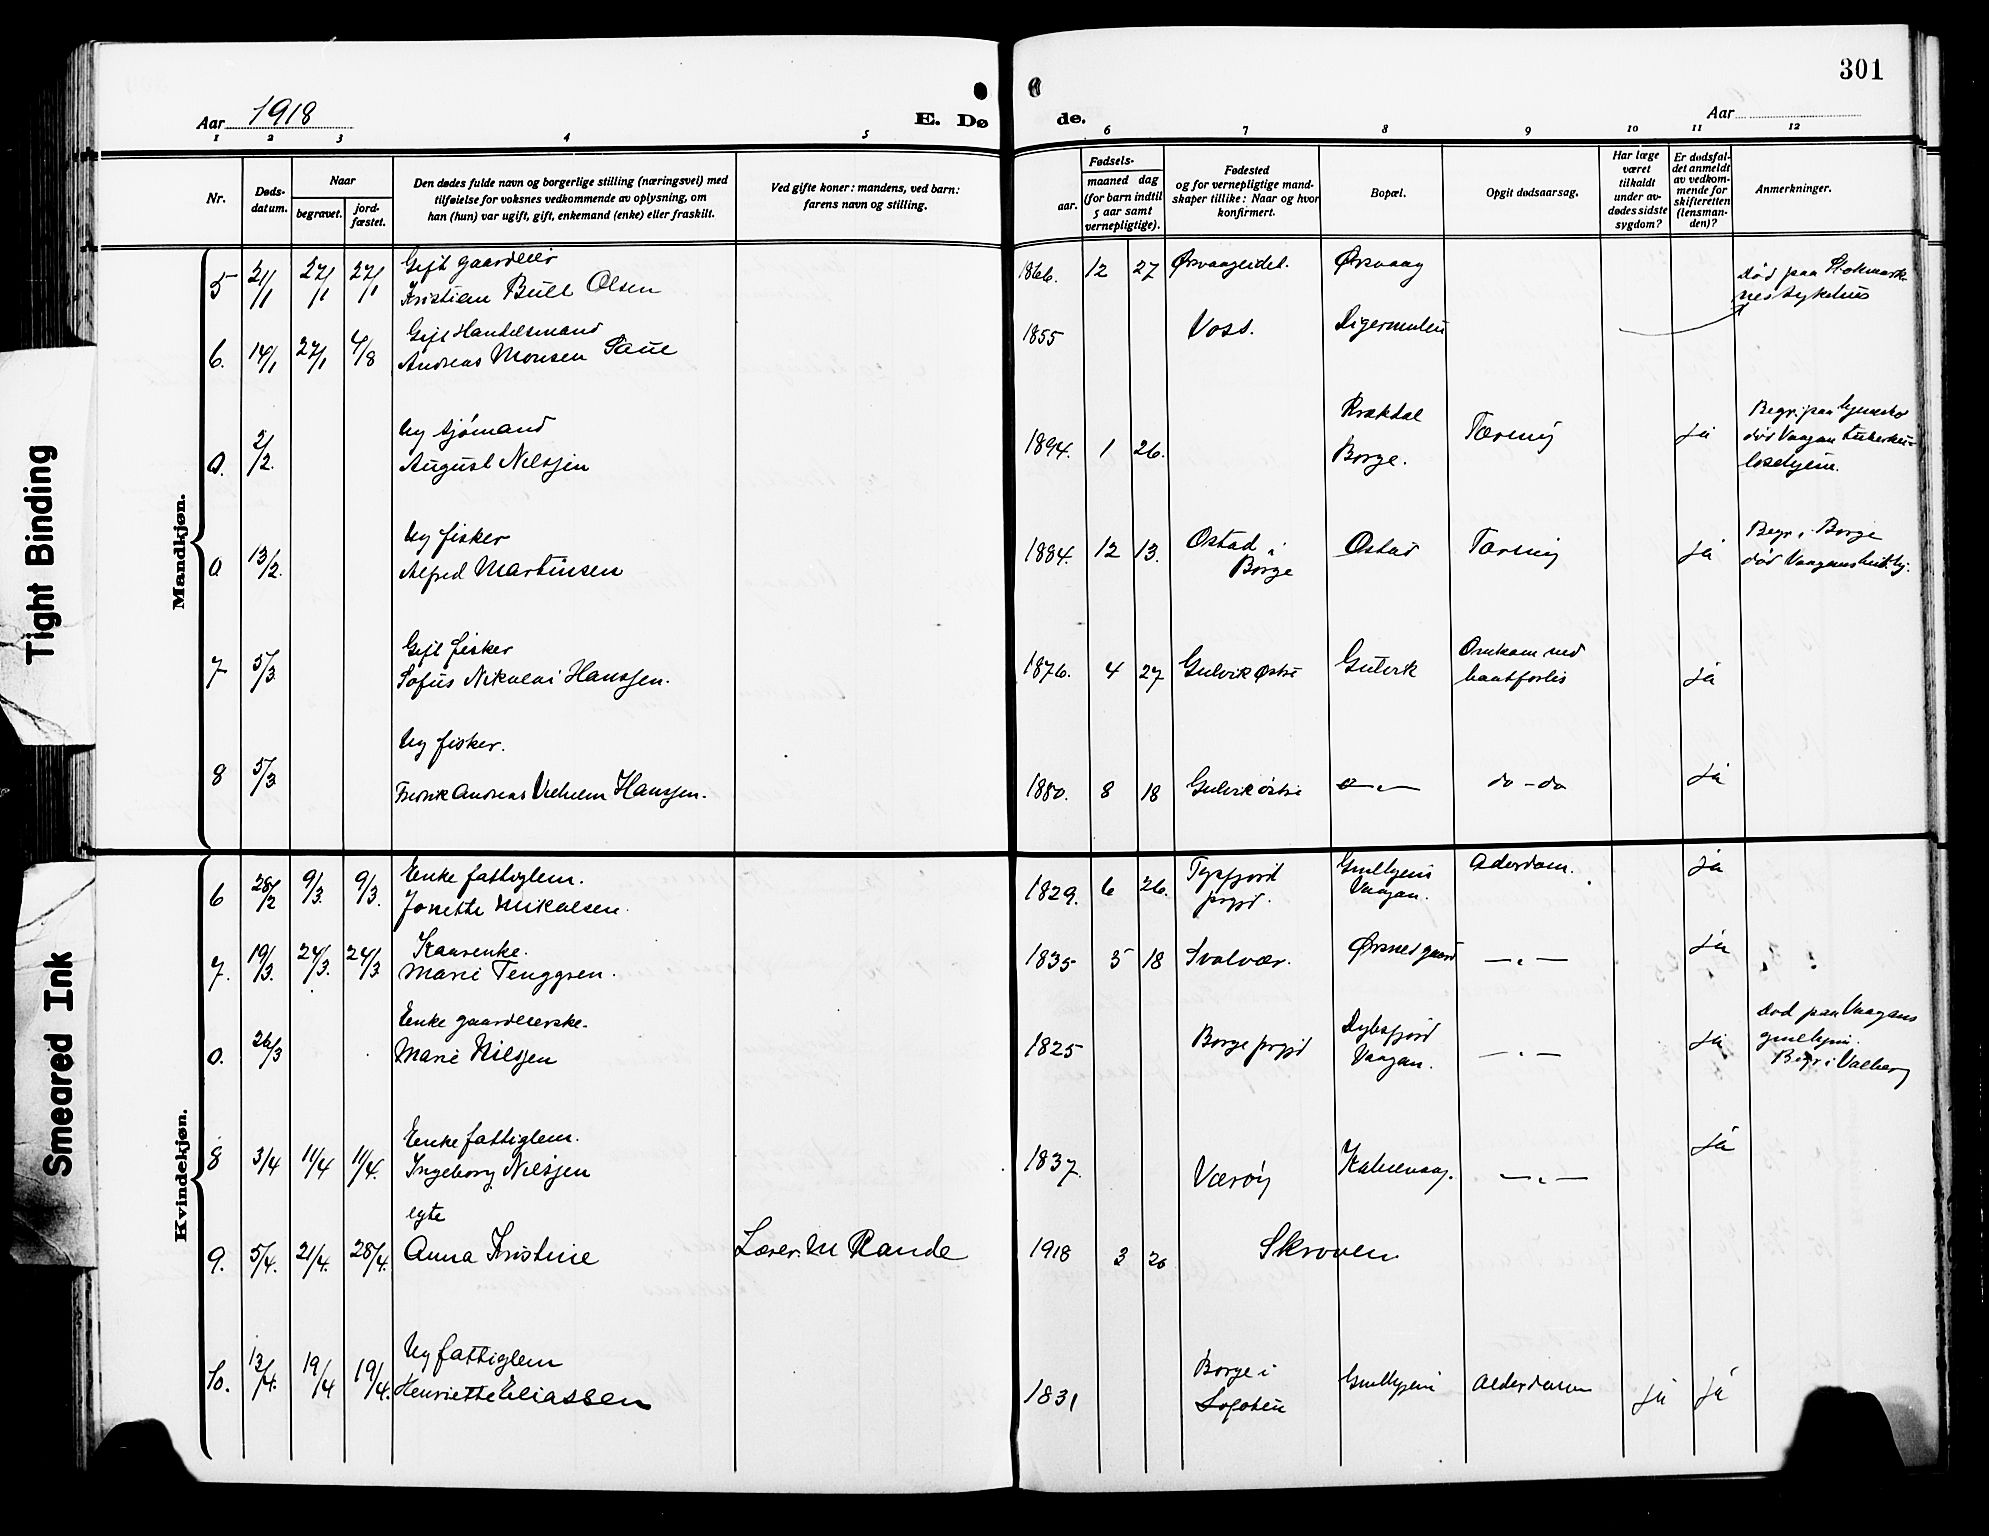 301
Aar 1918
E. Dø de.
Aar
1 2 3 4 5 6 7 8 9 10 11 12
Nr.
Døds-
datum.
Naar
begravet.
jord-
fæstet.
Den dødes fulde navn og borgerlige stilling (næringsvei) med
tilføielse for voksnes vedkommende av oplysning, om
han (hun) var ugift, gift, enkemand (enke) eller fraskilt.
Ved gifte koner: mandens, ved barn:
farens navn og stilling.
Fødsels-
aar.
maaned dag
(for barn indtil
5 aar samt
vernepligtige).
Fødested
og for vernepligtige mand-
skaper tillike: Naar og hvor
konfirmert.
Bopæl.
Opgit dødsaarsag.
Har læge
været
tilkaldt
under av-
dødes sidste
sygdom?
Er dødsfal-
det anmeldt
av vedkom-
mende for
skifteretten
(lensman-
den)?
Anmerkninger.
Mandkjøn.
Gift gaardeier
5 21/1 27/1 27/1 Kristian Bull Olsen 1866. 12 27 Ørsvaageidet. Ørsvaag
død paa Stokmark-
nes sykehus
Gift Handelsmand
6. 14/1 27/1 4/8 Andreas Monsen Saue 1855 Voss. Digermulen
Ug sjømand
0. 2/2. August Nilssen 1894. 1 26. Kræktal Borge. Tæring ja
død Vaagan tuberku-
losehjem.
Ug fisker
0 13/2. Alfred Martinsen 1884. 12 13. Ostad i Borge Ostad Tæring ja
Begr. i Borge
Gift fisker
7 5/3 Sofus Nikolai Hanssen. 1876. 4 27 Gulvik Østre Gulvik Omkom ved baatforlis ja
Ug fisker.
8 5/3 Fredrik Andreas Vilhelm Hanssen. 1880. 8 18 Gulvik østre —„— do – do ja
Kvindekjøn.
Enke fattiglem.
6 28/2 9/3. 9/3. Jonette Mikalsen. 1829. 6 26. Tysfjord prgjd. Gmlhjem Vaagan. Alderdom. ja
Kaarenke.
7. 19/3. 24/3. 24/3 Marie Tenggren. 1835 5 18 Svolvær. Ørsnes gaard —„— ja
Enke gaardeierske.
0. 26/3 Marie Nilssen 1825 Borge prgjd Dybfjord Vaagan. —„— ja
død paa Vaagans
gmlhjem.
Begr. i Valberg
Enke fattiglem.
8 3/4 11/4 11/4. Ingeborg Nilssen 1837. Værøy Kabelvaag. —„— ja
egte
9. 5/4. 21/4. 28/4. Anna Kristine Lærer. M Rande 1918 3 20 Skroven
Ug fattiglem
10. 13/4. 19/4 19/4. Henriette Eliassen 1831 Borge i Lofoten Gmlhjem Alderdom ja ja
Tight Binding
Smeared Ink